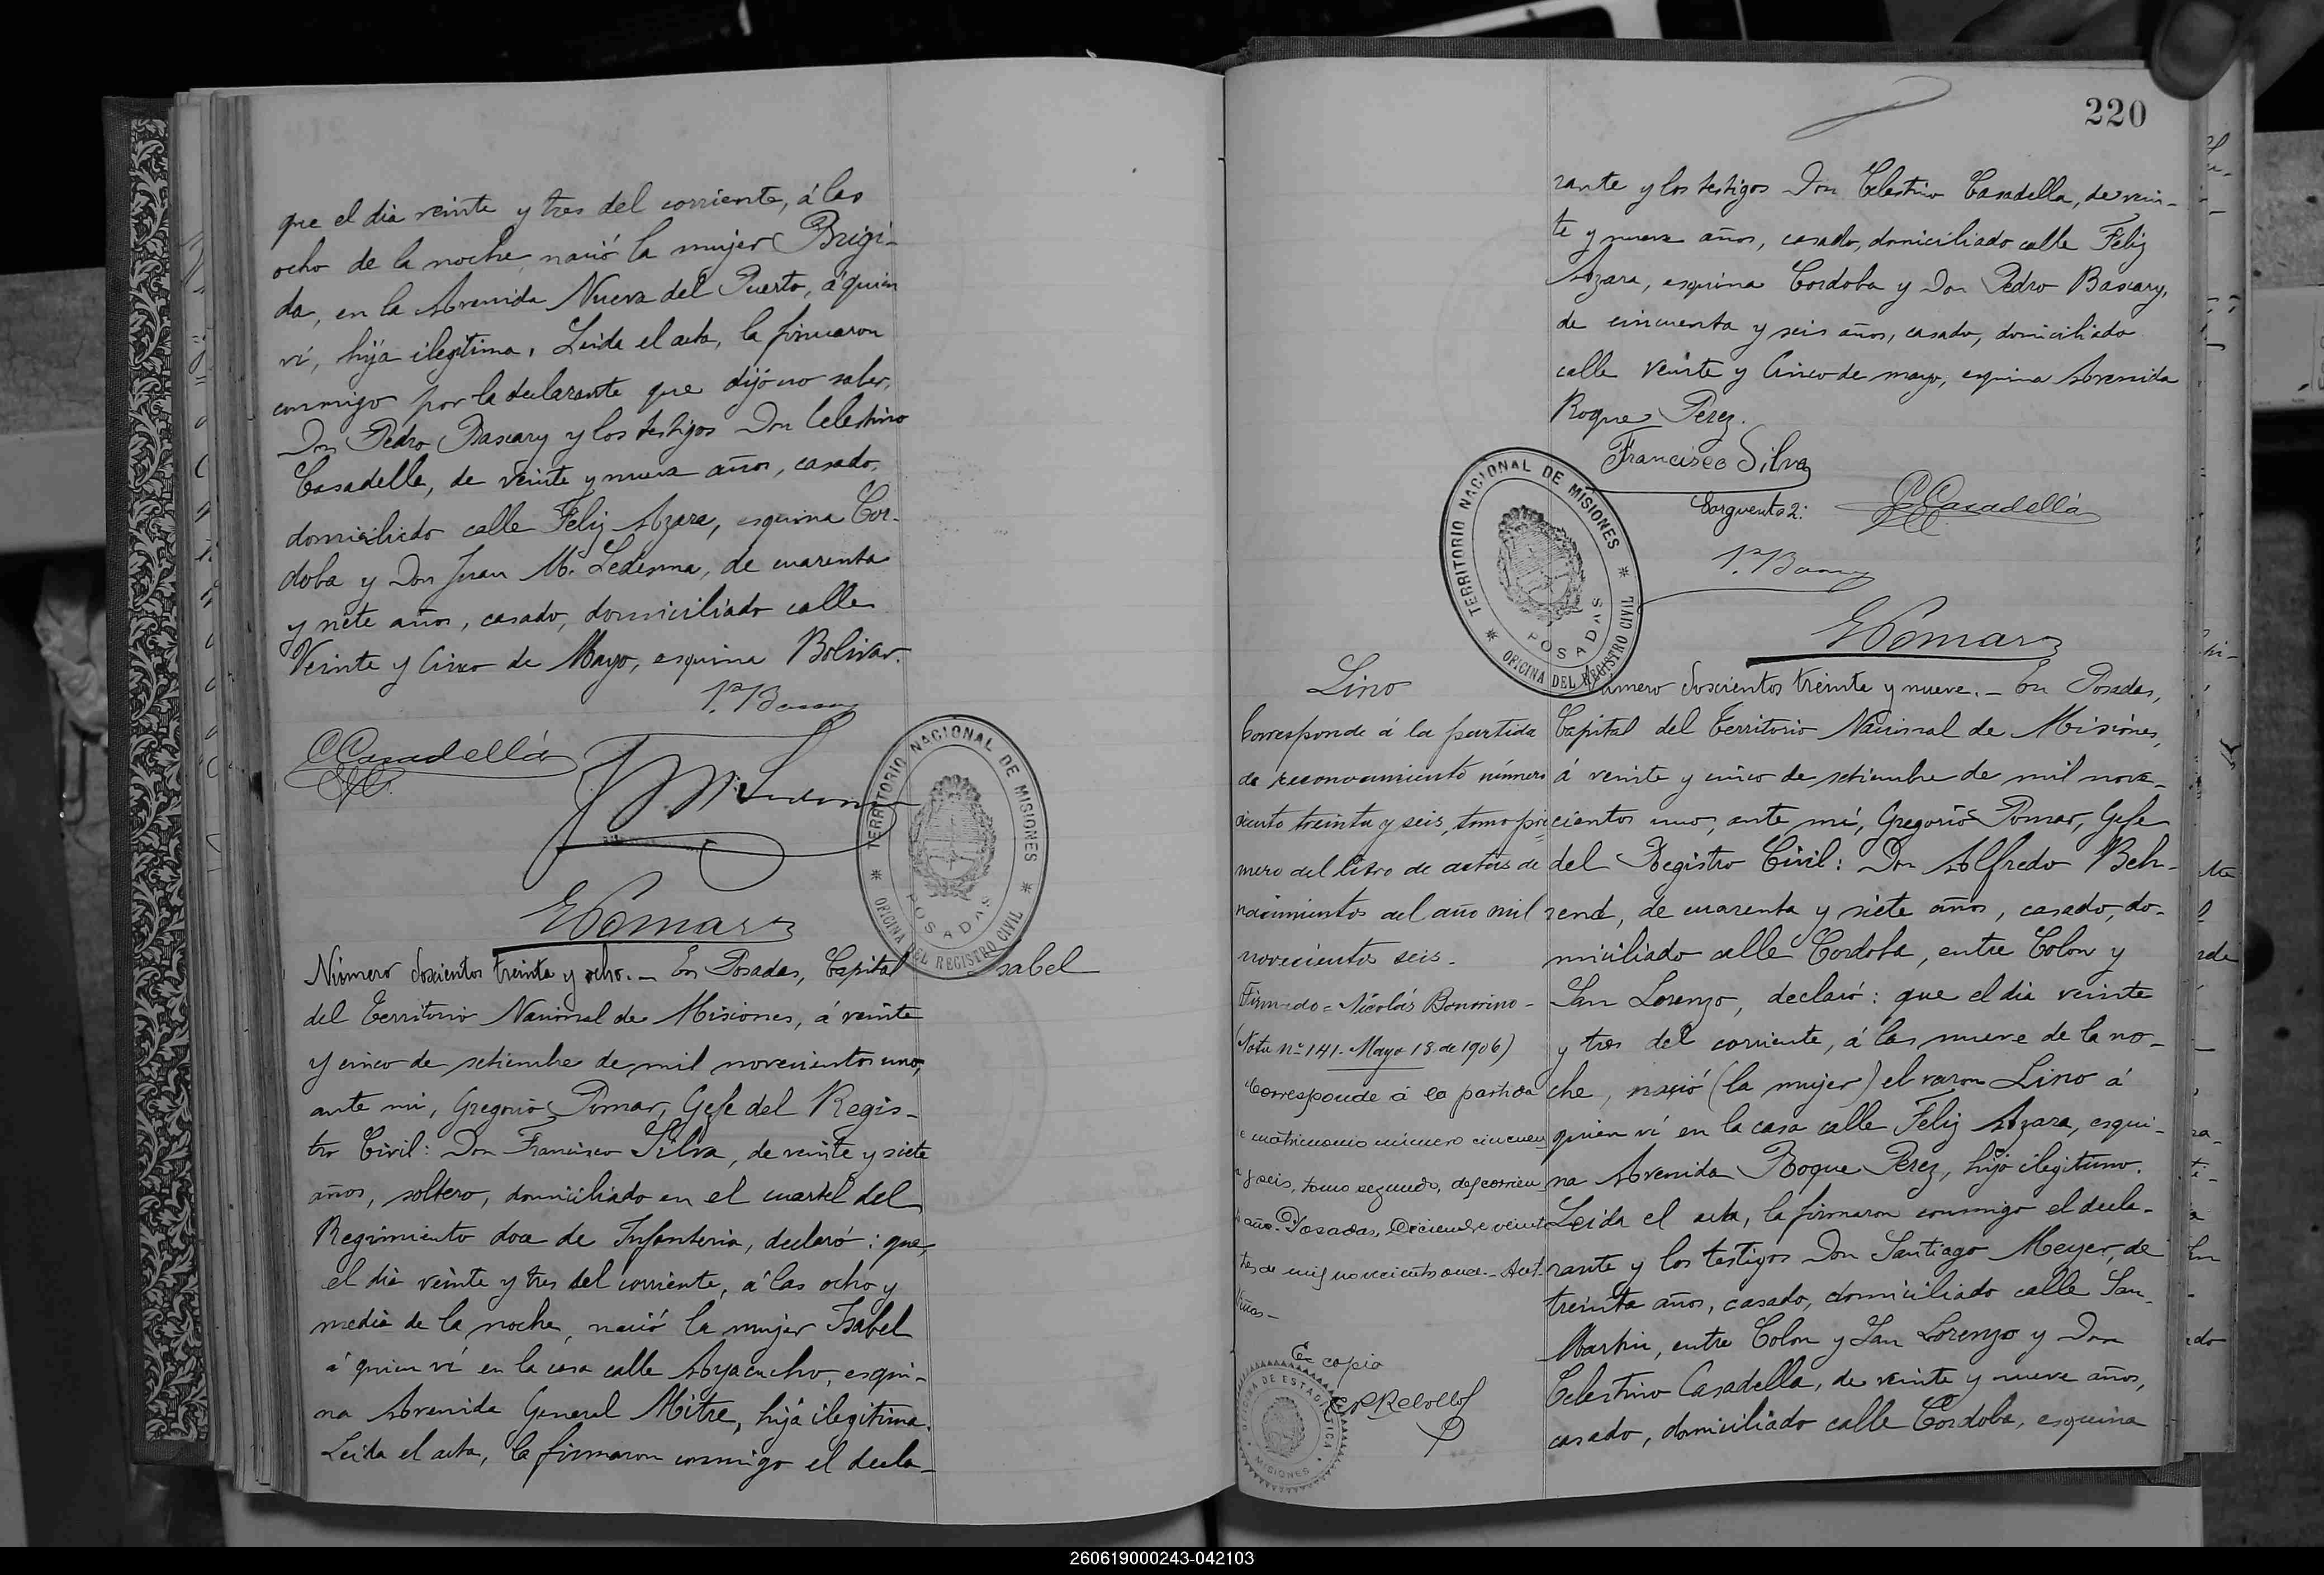 que el dia veinte y tres del corriente, á las
ocho de la noche, nació la mujer Brigi-
da, en la Avenida Nueva del Puerto, á quien
ví, hija ilegitima. Leida el acta, la firmaron
conmigo por la declarante que dijo no saber,
Don Pedro Bascary y los testigos Don Celestino
Casadella, de veinte y nueve años, casado,
domiciliado calle Feliz Azara, esquina Cor-
doba y Don Juan M. Ledesma, de cuarenta
y siete años, casado, domiciliado calle
Veinte y Cinco de Mayo, esquina Bolivar.
P. Bascary
C Casadellá
J M Ledesma
TERRITORIO NACIONAL DE MISIONES
POSADAS
OFICINA DEL REGISTRO CIVIL
GPomar
Número doscientos treinta y ocho. _ En Posadas, Capital
Isabel
del Territorio Nacional de Misiones, á veinte
y cinco de setiembre de mil novecientos uno,
ante mi, Gregorio Pomar, Gefe del Regis-
tro Civil: Don Francisco Silva, de veinte y siete
años, soltero, domiciliado en el cuartel del
Regimiento doce de Infanteria, declaró: que,
el dia veinte y tres del corriente, á las ocho y
media de la noche, nació la mujer Isabel
á quien ví en la casa calle Ayacucho, esqui-
na Avenida General Mitre, hija ilegitima.
Leida el acta, la firmaron conmigo el decla-
220
rante y los testigos Don Celestino Casadella, de vein-
te y nueve años, casado, domiciliado calle Feliz
Azara, esquina Cordoba y Don Pedro Bascary,
de cincuenta y seis años, casado, domiciliado
calle Veinte y Cinco de mayo, esquina Avenida
Roque Perez.
Francisco Silva
Sargento 2º
C Casadellá
P. Bascary
TERRITORIO NACIONAL DE MISIONES
POSADAS
OFICINA DEL REGISTRO CIVIL
GPomar
Lino
Corresponde á la partida
de reconocimiento número
ciento treinta y seis, tomo pri
mero del libro de actas de
nacimientos del año mil
novecientos seis.
Firmado = Nicolás Bonorino -
(Nota nº 141 - Mayo 18 de 1906)
Corresponde á la partida
e matrimonio número cincuen
y seis, tomo segundo, del corrien
año. Posadas, Diciembre veint
de mil novecientos once. -
Es copia
OFICINA DE ESTADISTICA
MISIONES
Número doscientos treinta y nueve. _ En Posadas,
Capital del Territorio Nacional de Misiones,
á veinte y cinco de setiembre de mil nove-
cientos uno, ante mí, Gregorio Pomar, Gefe
del Registro Civil: Don Alfredo Beh-
rend, de cuarenta y siete años, casado, do-
miciliado calle Cordoba, entre Colon y
San Lorenzo, declaró: que el dia veinte
y tres del corriente, á las nueve de la no-
che, nació (la mujer) el varon Lino á
quien ví en la casa calle Feliz Azara, esqui-
na Avenida Roque Perez, hijo ilegitimo.
Leida el acta, la firmaron conmigo el decla-
rante y los testigos Don Santiago Meyer, de
treinta años, casado, domiciliado calle San
Martin, entre Colon y San Lorenzo y Don
Celestino Casadella, de veinte y nueve años,
casado, domiciliado calle Cordoba, esquina
260619000243-042103